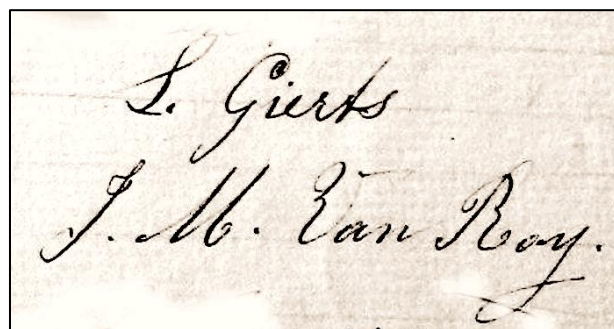 L. Gierts
J. M. Van Roy.